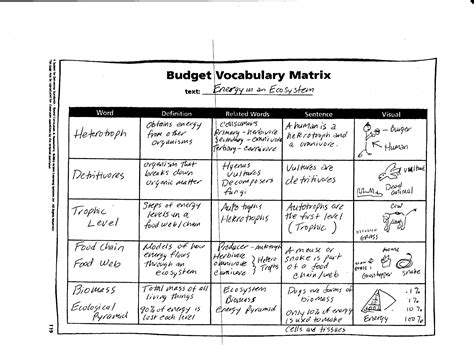 Budget Vocabulary Matrix
text: Energy in an Ecosystem
Word Definition Related Words Sentence Visual
Heterotroph
Obtains energy
from other
organisms
Consumers
Primary - herbivore
Secondary - omnivore
Tertiary - carnivore
A human is a
heterotroph and
a omnivore.
burger
Human
Detritivores
organism that
breaks down
organic matter
Hyenas
Vultures
Decomposers
fungi
Vultures are
detritivores
vulture
Dead
animal
Trophic
Level
Steps of energy
levels in a
food web/chain
Autotrophs
Heterotrophs
Autotrophs are
the first level
(Trophic)
Cow
Grass
Food Chain
Food Web
Models of how
energy flows
through an
ecosystem
Producer - autotroph
Herbivore
omnivore
carnivore
Hetero
Trophs
A mouse or
snake is part
of a food
chain/web
mouse
grass
Grasshopper
snake
Biomass
Ecological
Pyramid
Total mass of all
living things
90% of energy is
lost each level
Ecosystem
Biomass
Energy Pyramid
Dogs are forms of
biomass
Only 10% of energy
is used to make
Cells and tissues
.1%
1%
10%
Energy 100%
119